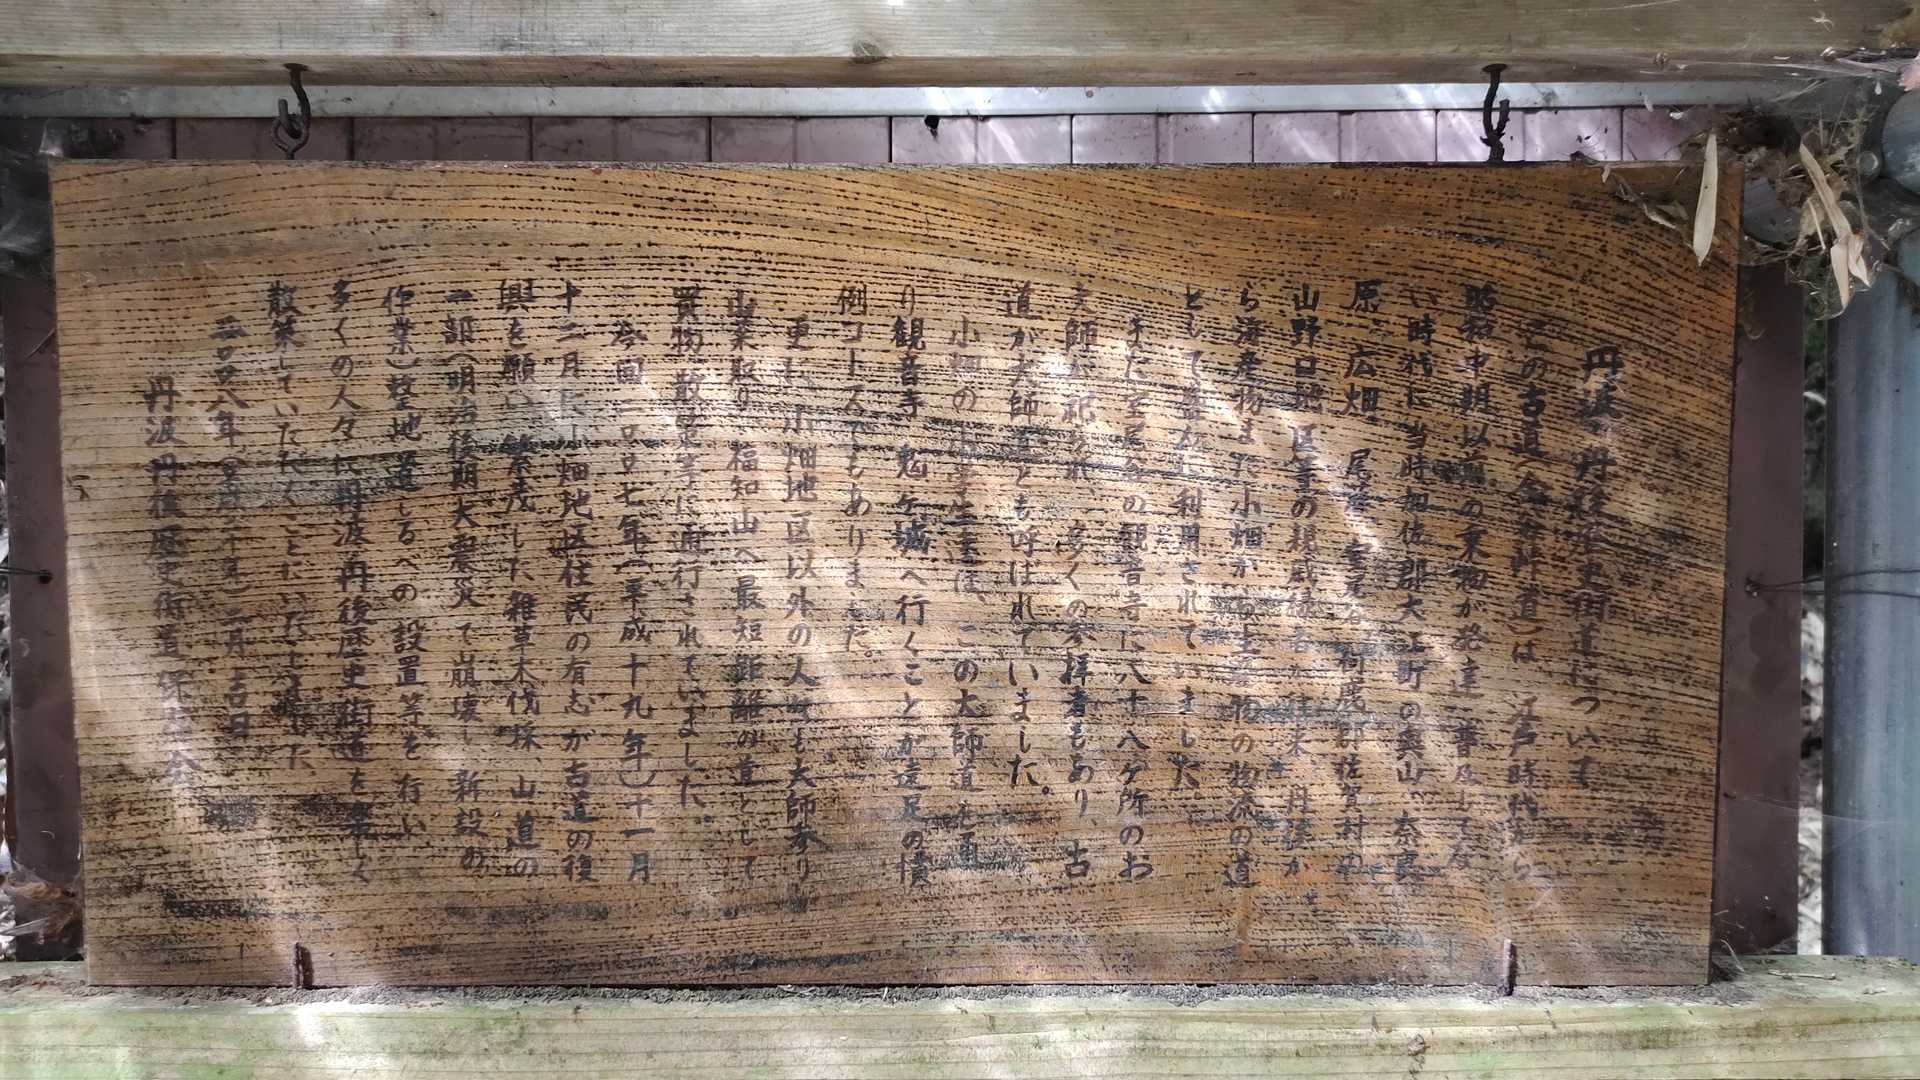 丹波 丹後歴史街道について
この古道(余谷峠道)は、江戸時代から
昭和中期以前の乗物が発達、普及してな
い時代に、当時加佐郡大江町の奥山、奈良
原、広畑、尾藤、室尾谷、何鹿郡佐賀村中
山野口地区等の親戚縁者が往来、丹後か
ら海産物また小畑から土産物の物流の道
として盛んに利用されていました。
また室尾谷の観音寺に八十八ケ所のお
大師が祀られ、多くの参拝者もあり、古
道が大師道とも呼ばれていました。
小畑の小学生達は、この大師道を通
り観音寺、鬼ケ城へ行くことが遠足の慣
例コースでもありました。
更に、小畑地区以外の人々も大師参り
山菜取り、福知山へ最短距離の道として
買物、散策等に通行されていました。
今回二〇〇七年(平成十九年)十一月
十二月に小畑地区住民の有志が古道の復
興を願い、繁茂した雑草木伐採、山道の
一部(明治後期大震災で崩壊し新設の
作業)整地、道しるべの設置等を行い
多くの人々に丹波、丹後歴史街道を楽しく
散策していただくことにいたしました。
二〇〇八年(平成二十年)二月
丹波 丹後歴史街道保存会